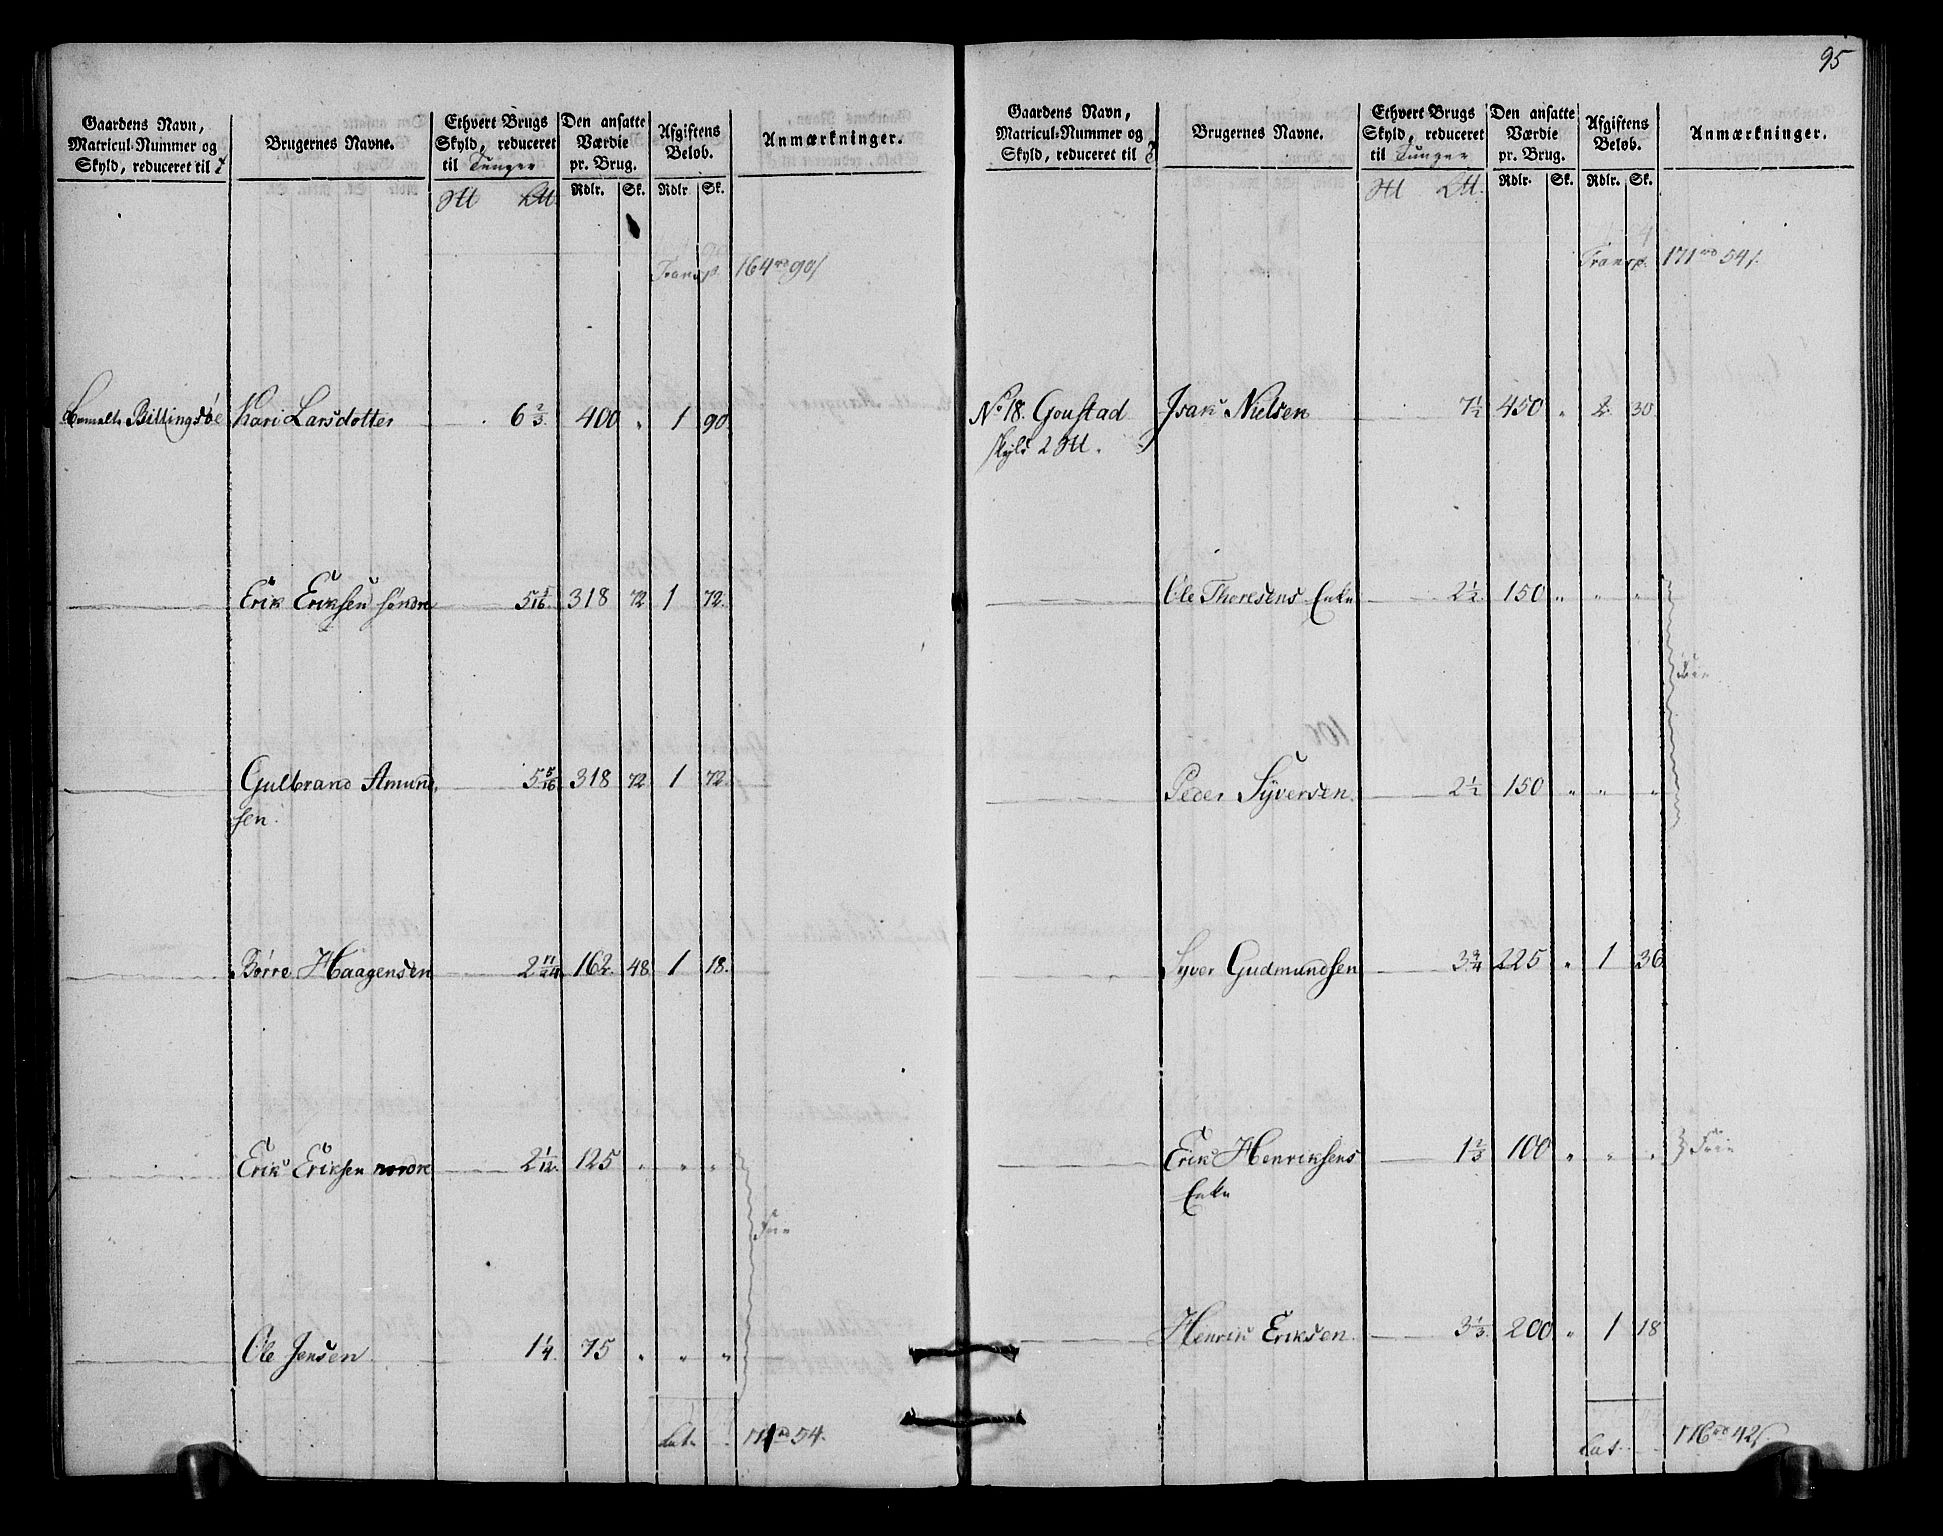 95
Gaardens Navn, Matricul-Nummer og Skyld, reduceret til
Brugernes Navne.
Ethvert Brugs Skyld, reduceret til Tunger
Den ansatte Værdie pr. Brug.
Afgiftens Beløb.
Anmærkninger.
Rdlr. Sk. Rdlr. Sk.
Transp. 164 rd 90
Billingsøe Kari Larsdotter 6 2/3 400 " 1 90
Erik Eriksen søndre 5 5/16 318 72 1 72
Gulbrand Amund
sen 5 5/16 318 72 1 72
Børre Haagensen 2 17/24 162 48 1 18
Erik Eriksen nordre 2 1/12 125 " " "
Frie
Ole Jensen 1 1/4 75 " " "
Lat. 171 rd 54
Gaardens Navn, Matricul-Nummer og Skyld, reduceret til
Brugernes Navne.
Ethvert Brugs Skyld, reduceret til Tunger
Den ansatte Værdie pr. Brug.
Afgiftens Beløb.
Anmærkninger.
Rdlr. Sk. Rdlr. Sk.
Transp. 171 rd 54
No 18. Goustad Isak Nielsen 7 1/2 450 " 2 30
Skyld 2
Ole Thoresens Enke 2 1/2 150 " " "
Frie
Peder Syversen 2 1/2 150 " " "
Syver Gudmundsen 3 3/4 225 " 1 36
Erik Henriksens 1 2/3 100 " " " Frie
Enke
Henrik Eriksen 3 1/3 200 " 1 18
Lat. 176 rd 42